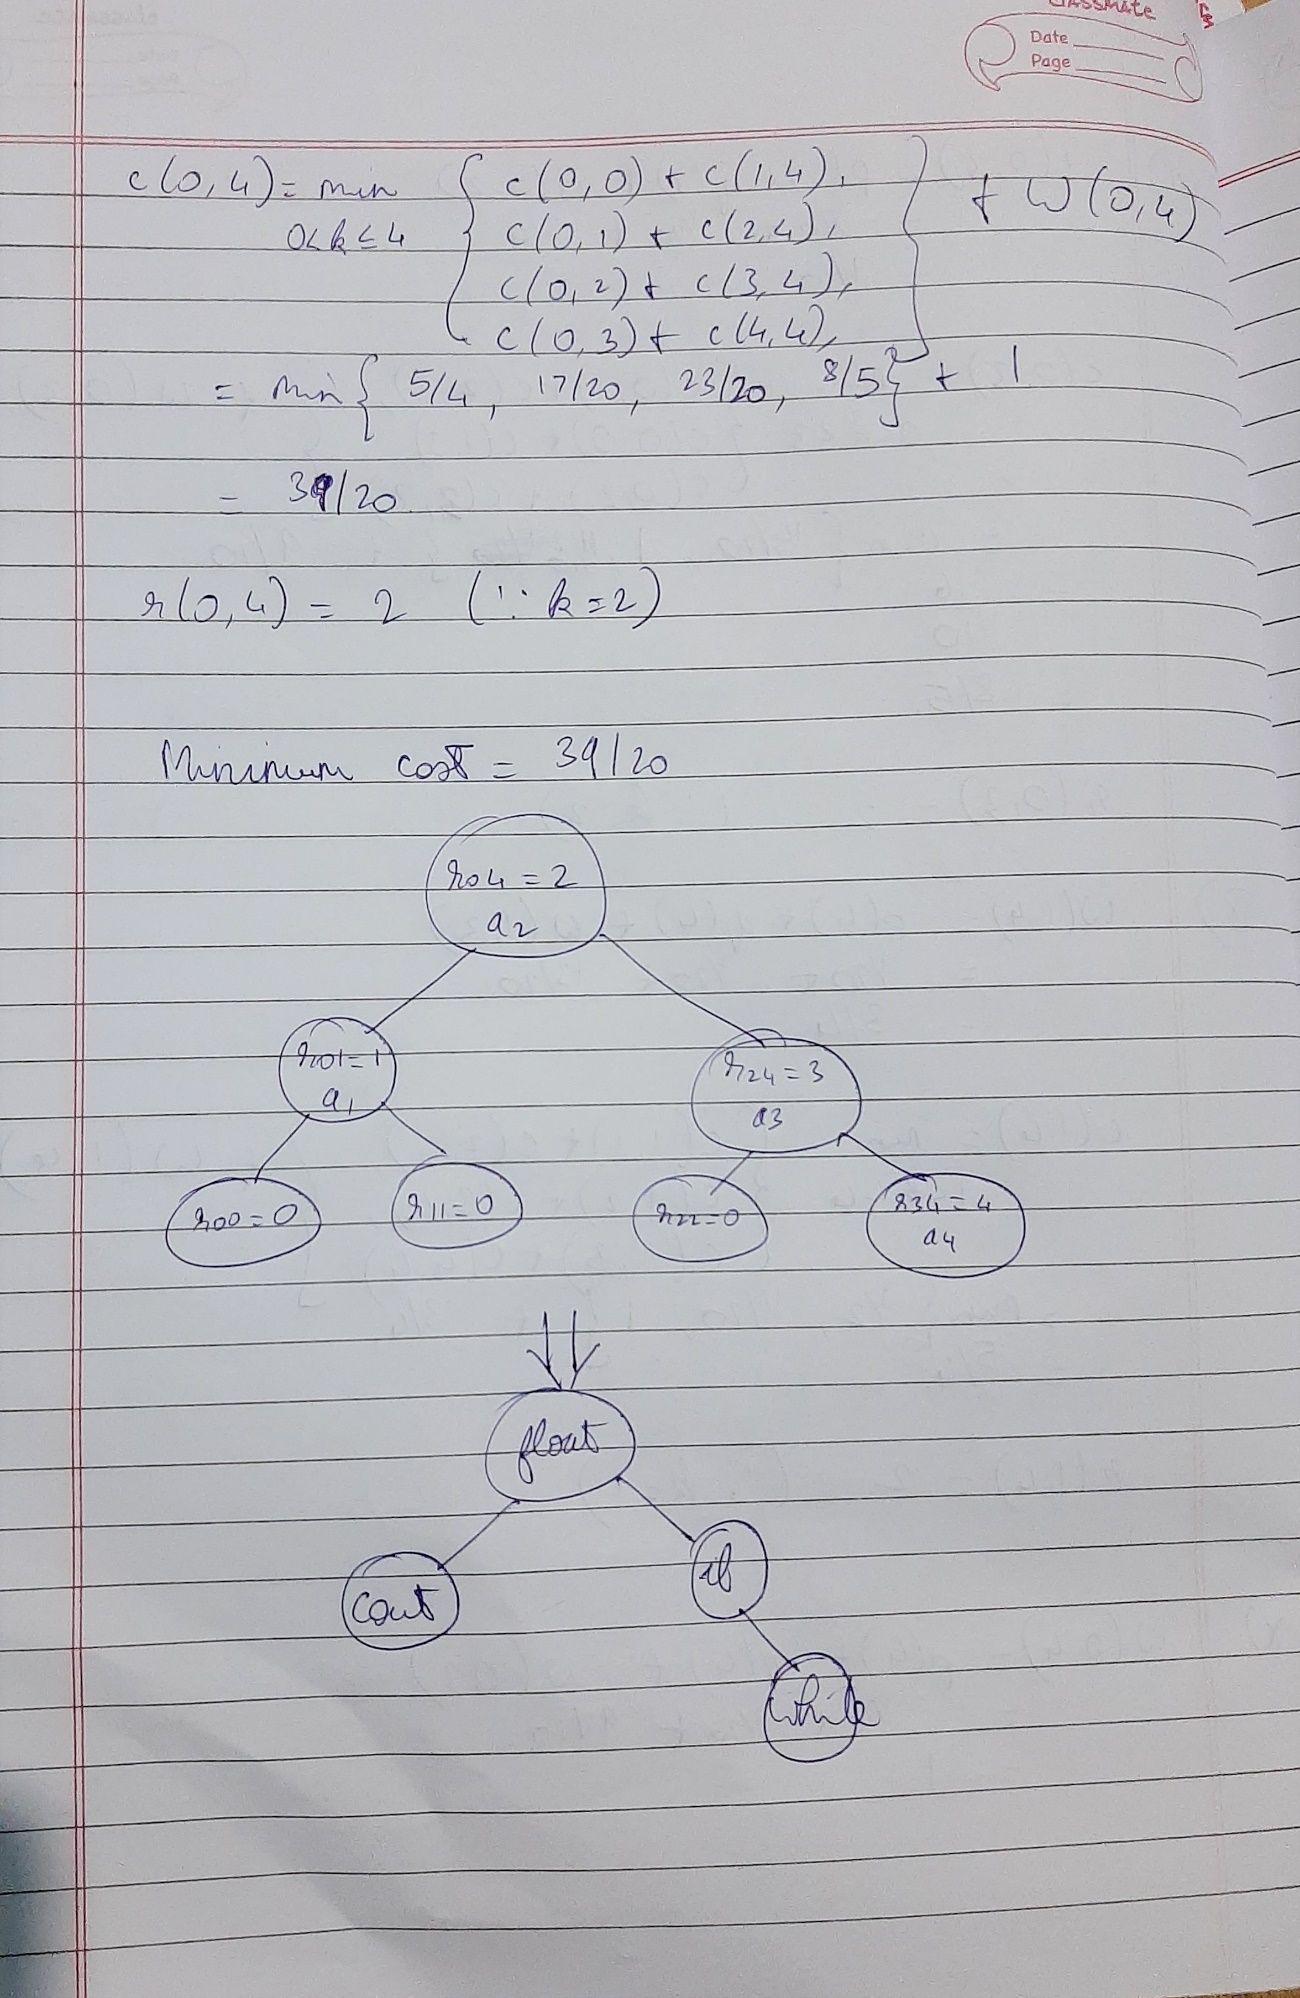 classmate
Date
Page
c(0,4) = min { c(0,0) + c(1,4), } + W(0,4)
0<k≤4 c(0,1) + c(2,4),
c(0,2) + c(3,4),
c(0,3) + c(4,4),
= min { 5/4, 17/20, 23/20, 8/5 } + 1
= 39/20
r(0,4) = 2 (∵ k=2)
Minimum cost = 39/20
r04 = 2
a2
r01 = 1
a1
r24 = 3
a3
r00 = 0
r11 = 0
r22 = 0
r34 = 4
a4
float
cout
if
while